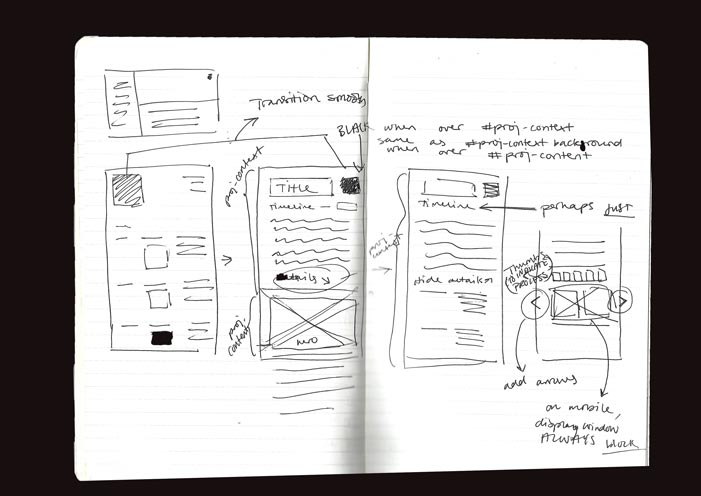 Transition smooth
BLACK when over #proj-context
same as #proj-context background
when over #proj-content
proj-context
TITLE
Timeline
details
proj-content
hero
Timeline
perhaps just
hide details
THUMBS
TO INDICATE
PROCESS
<
>
add arrows
on mobile,
display window
ALWAYS block